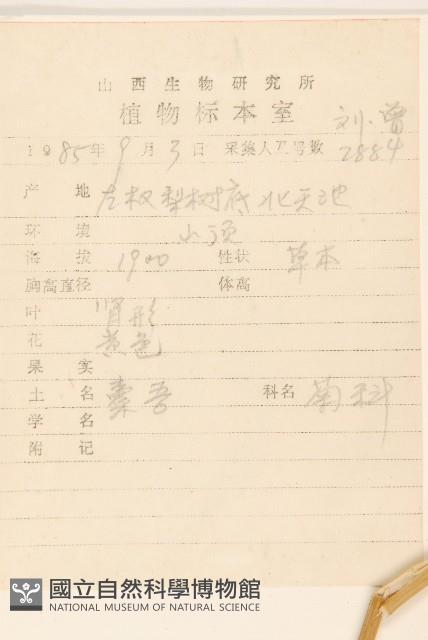 山西生物研究所
植物标本室
刘、曾
1985年9月3日 采集人及号数 2884
产地 左权梨树底北天池
环境 山顶
海拔 1900 性状 草本
胸高直径 体高
叶 肾形
花 黄色
果实
土名 橐吾 科名 菊科
学名
附记
國立自然科學博物館
NATIONAL MUSEUM OF NATURAL SCIENCE